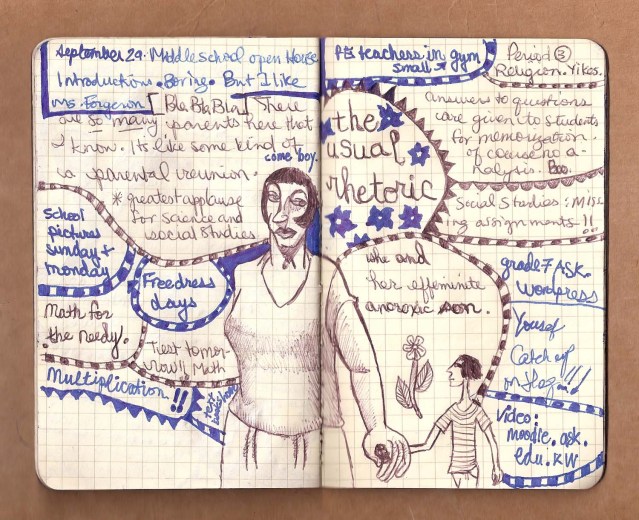 September 29. Middle school open House
Introduction. Boring. But I like
Ms. Fergeron [Bla Bla Bla] There
are so many parents here that
I know. Its like some kind of
a parental reunion.
come boy.
* greatest applause
for science and
social studies
School
pictures
sunday +
monday
Free dress
days
Math for
the needy!
Test tomor-
row!! Math
Multiplication!!
PE teachers in gym
small
Period 3
Religion. Yikes.
the
usual
rhetoric
answers to questions
are given to students
for memorization
of course no a-
nalysis. Boo.
Social Studies: Miss
ing assignments!!
she and
her effeminite
anorexic son.
grade 7 ASK.
Wordpress
Yousef
Catch up
on
Video:
moodle.ask.
edu.kw